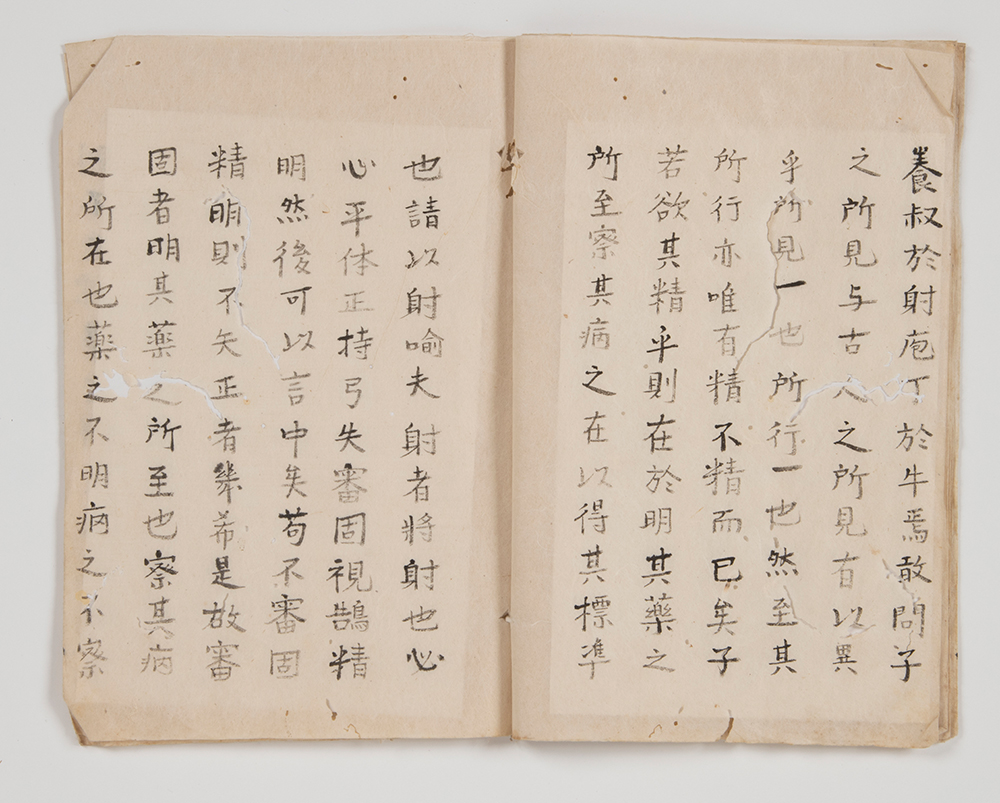 養叔於射庖丁於牛焉敢問子
之所見与古人之所見有以異
乎所見一也所行一也然至其
所行亦唯有精不精而已矣子
若欲其精乎則在於明其藥之
所至察其病之在以得其標準
也請以射喻夫射者將射也必
心平体正持弓矢審固視鵠精
明然後可以言中矣苟不審固
精明則不矢正者幾希是故審
固者明其藥之所至也察其病
之所在也藥之不明病之不察